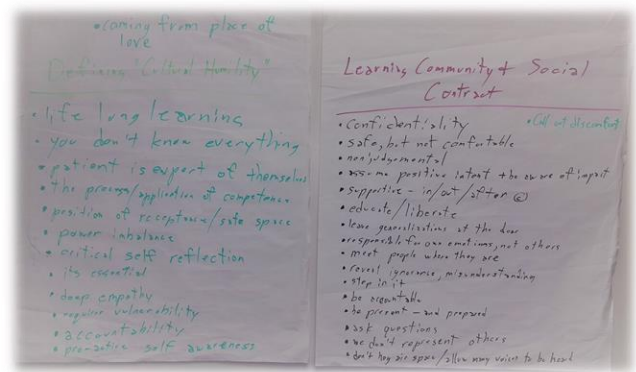 • coming from place of
love
Defining "Cultural Humility"
• life long learning
• you don't know everything
• patient is expert of themselves
• the process/application of competence
• position of receptance/safe space
• power imbalance
• critical self reflection
• its essential
• deep empathy
• requires vulnerability
• accountability
• pro-active self awareness
Learning Community & Social
Contract
• confidentiality
• Call out discomfort
• safe, but not comfortable
• nonjudgemental
• assume positive intent + be aware of impact
• supportive - in/out/after
• educate/liberate
• leave generalizations at the door
• responsible for own emotions, not others
• meet people where they are
• reveal ignorance, misunderstanding
• step in it
• be accountable
• be present - and prepared
• ask questions
• we don't represent others
• don't hog air space/allow many voices to be heard